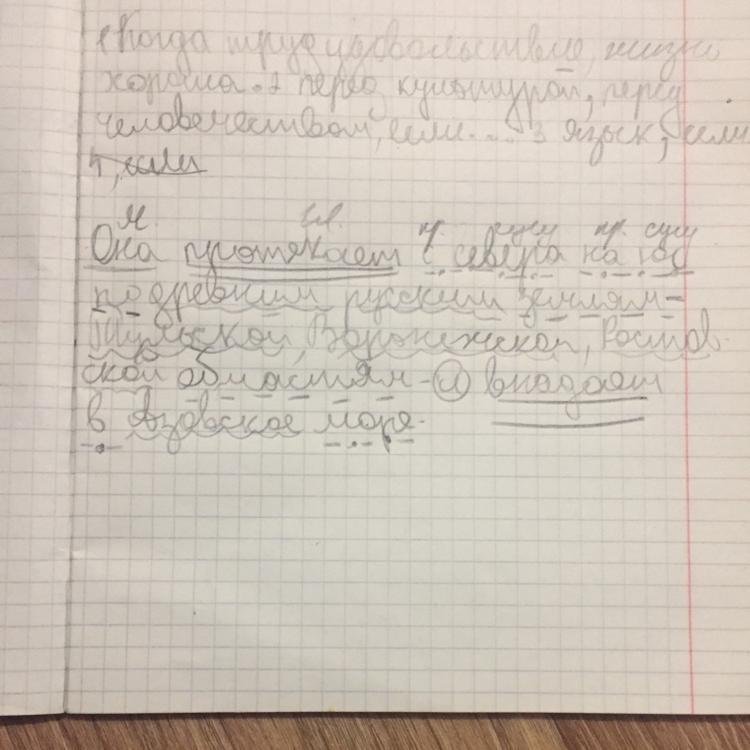 Когда труд удовольствие, жизнь
хороша. 2 перед культурой, перед
человечеством, если.... 3 язык, если
4, если
М. гл. пр сущ пр. сущ
Она протекает с севера на юг
по древним русским землям-
Тульской, Воронежской, Ростов-
ской областям - и впадает
в Азовское море.